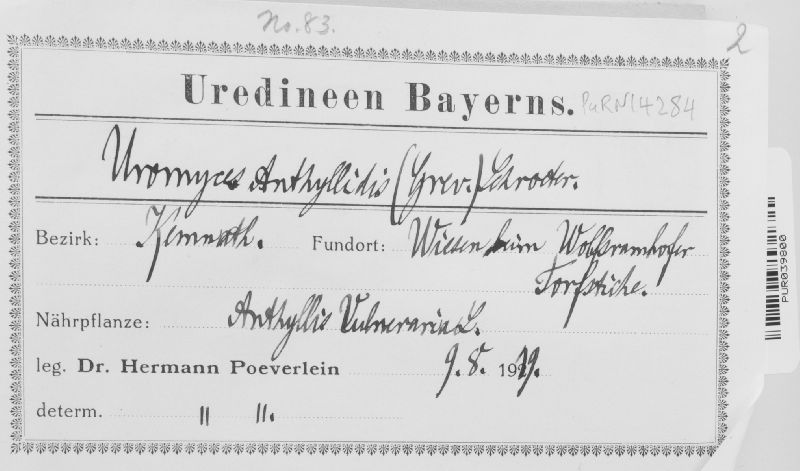 No. 83.
2
Uredineen Bayerns.
PuRN14284
Uromyces Anthyllidis (Grev.) Schroeter.
Bezirk: Kemnath. Fundort: Wiesen beim Wolframhofer
Torfstiche.
Nährpflanze: Anthyllis Vulneraria L.
leg. Dr. Hermann Poeverlein 9. 8. 1919.
determ. " ".
PUR039800